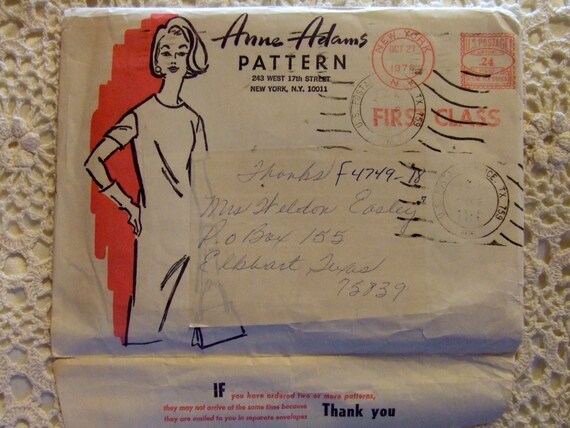 Anne Adams
PATTERN
243 WEST 17th STREET
NEW YORK, N.Y. 10011
NEW YORK
OCT 21
1976
N.Y.
U.S. POSTAGE
.24
FIRST CLASS
TX 759
TX 759
Thanks F4749-18
Mrs Weldon Easley
P.O Box 155
Elkhart Texas
75839
IF you have ordered two or more patterns,
they may not arrive at the same time because
they are mailed to you in separate envelopes
Thank you